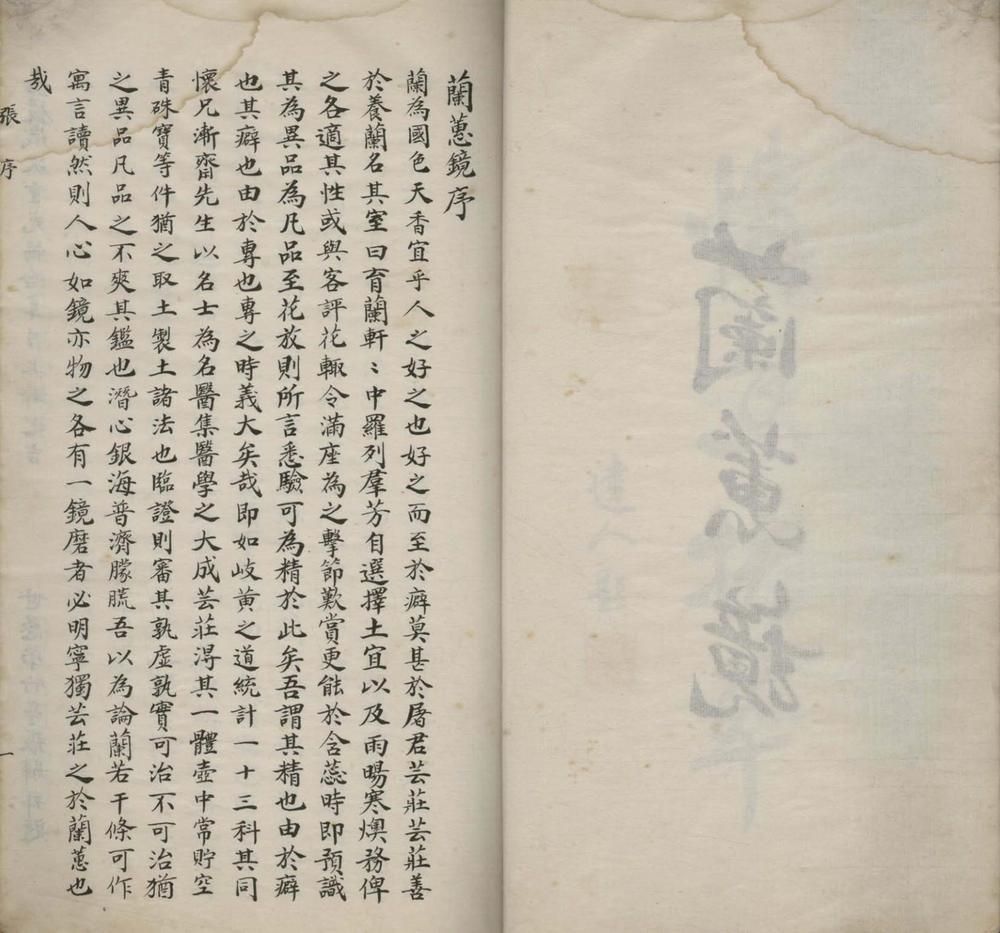 蘭蕙鏡序
蘭為國色天香宜乎人之好之也好之而至於癖莫甚於屠君芸莊芸莊善
於養蘭名其室曰育蘭軒〻中羅列羣芳自選擇土宜以及雨暘寒燠務俾
之各適其性或與客評花輒令滿座為之擊節歎賞更能於含蕊時即預識
其為異品為凡品至花放則所言悉驗可為精於此矣吾謂其精也由於癖
也其癖也由於專也專之時義大矣哉即如岐黃之道統計一十三科其同
懷兄漸齋先生以名士為名醫集醫學之大成芸莊淂其一體壺中常貯空
青硃寶等件猶之取土製土諸法也臨證則審其孰虛孰實可治不可治猶
之異品凡品之不爽其鑑也潛心銀海普濟朦朧吾以為論蘭若干條可作
寓言讀然則人心如鏡亦物之各有一鏡磨者必明寧獨芸莊之於蘭蕙也
哉
張序
一